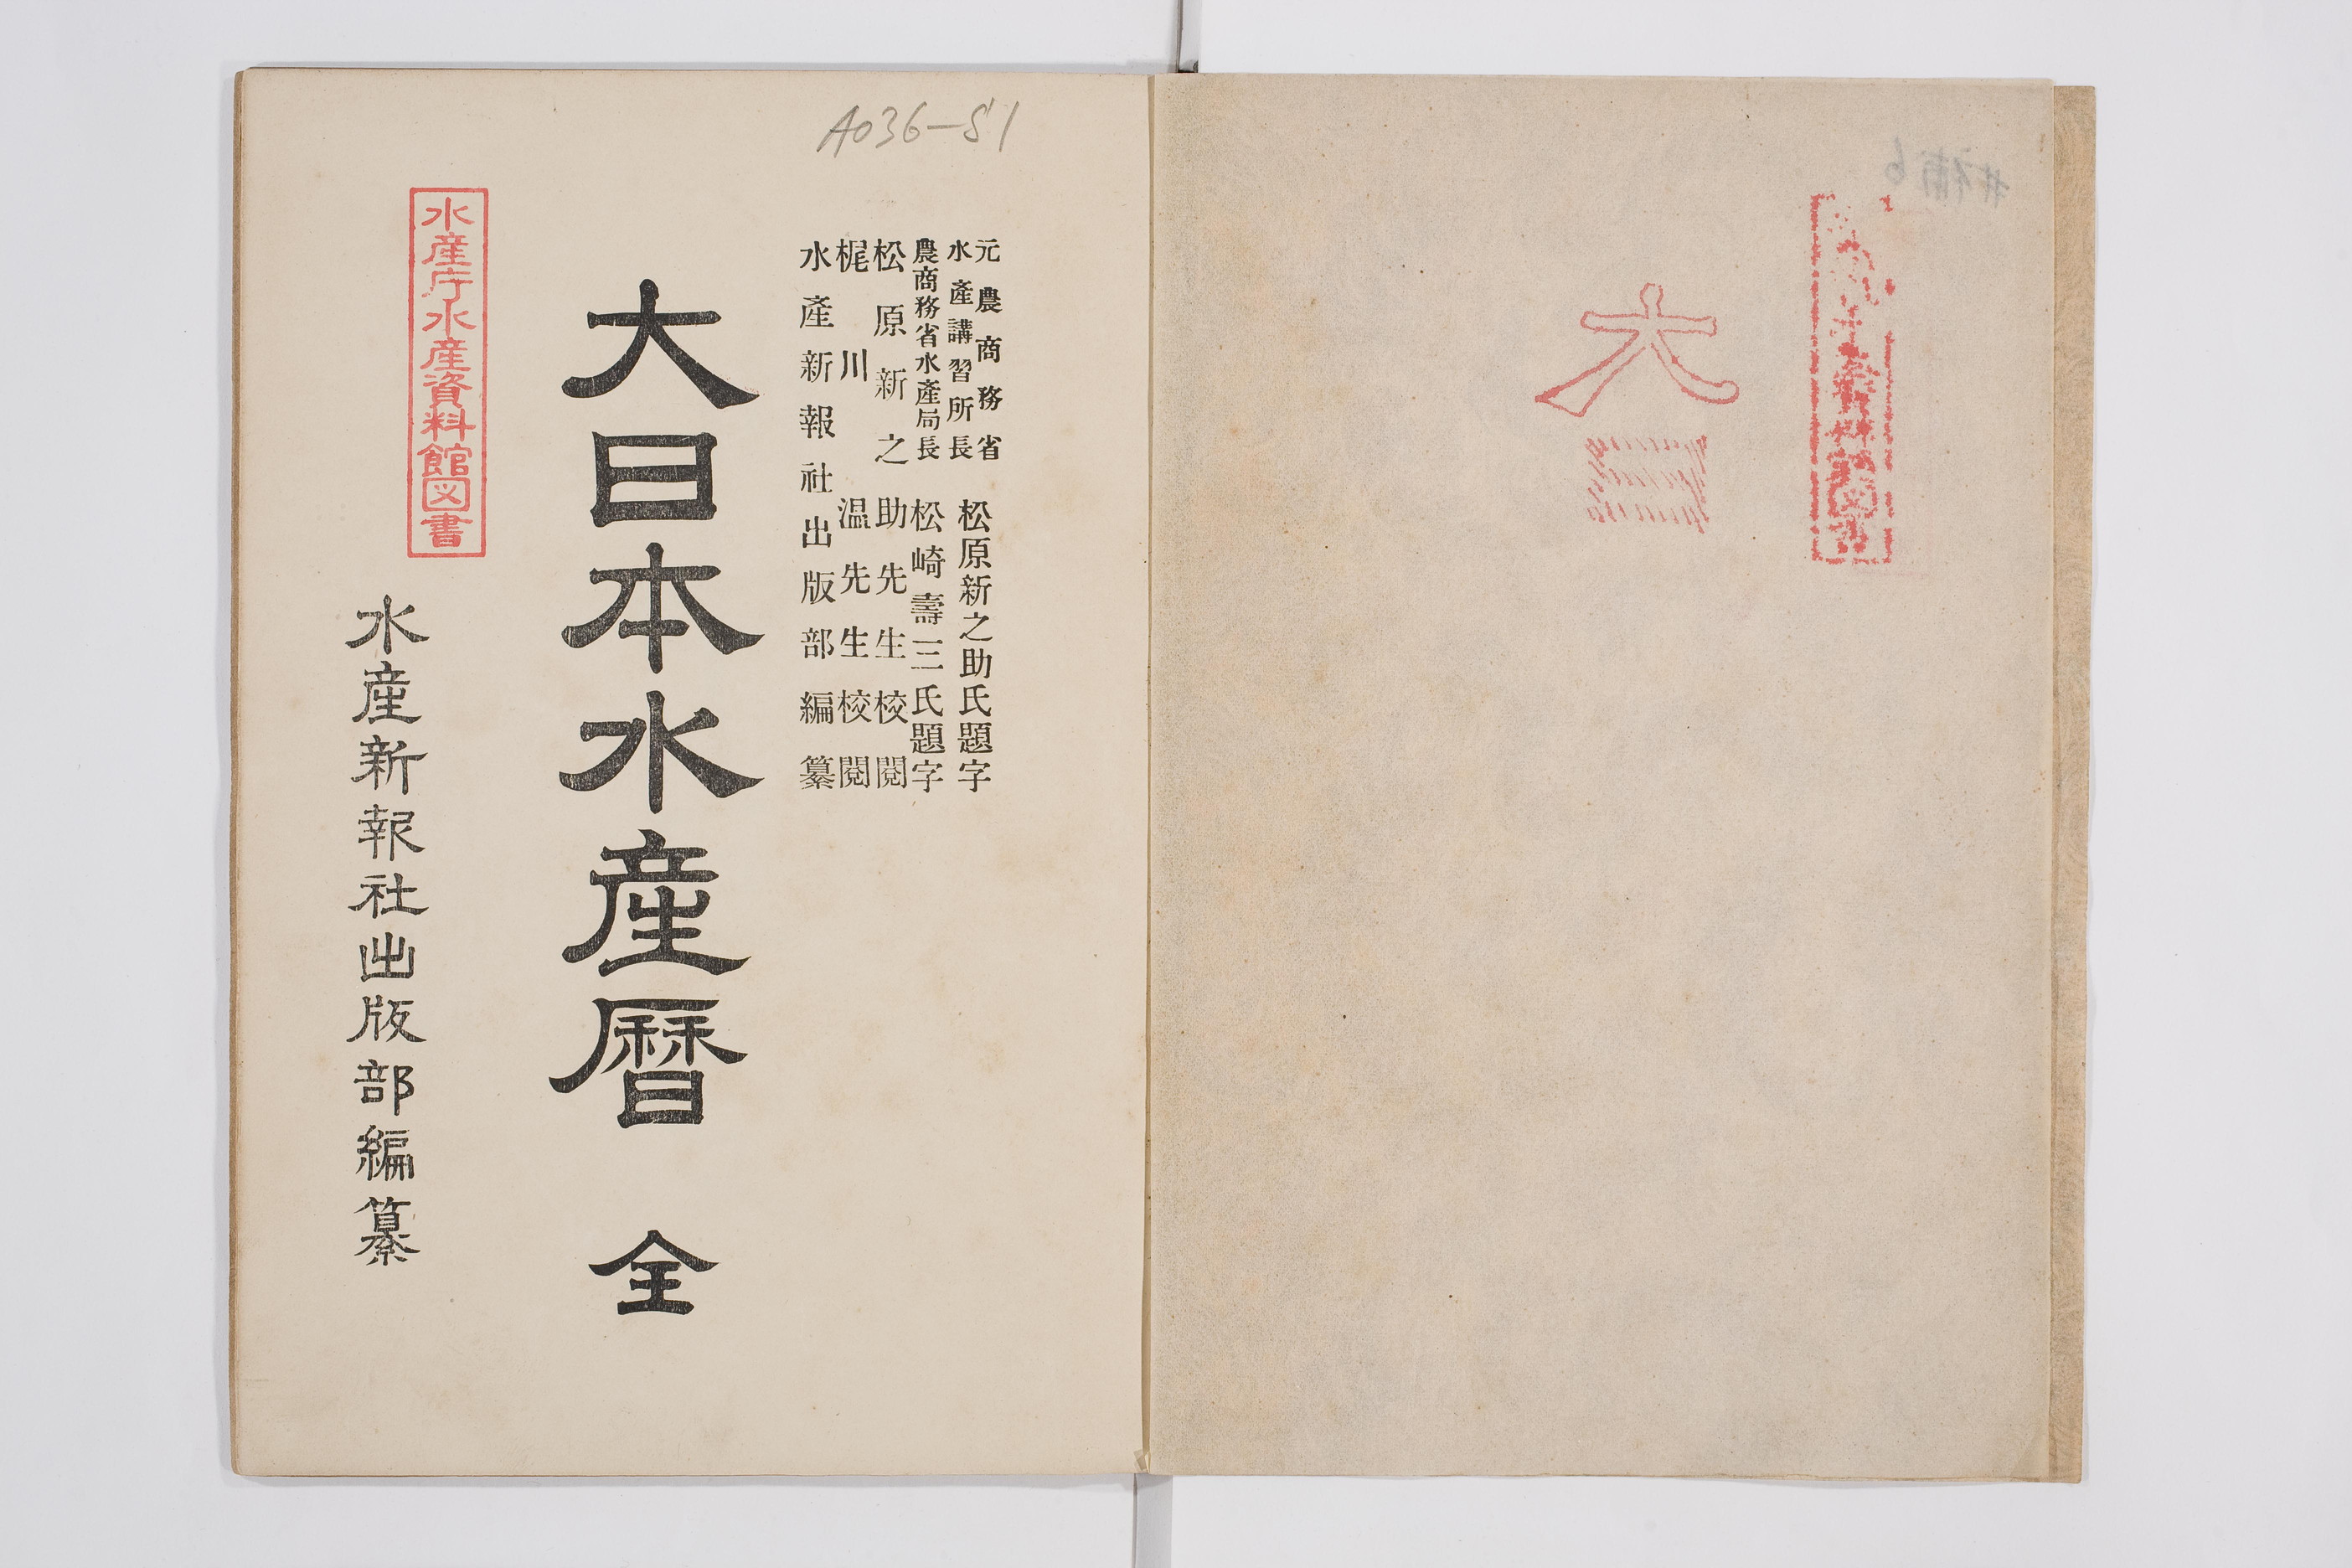 大
A036-51
元農商務省
水産講習所長
松原新之助氏題字
農商務省水産局長 松崎壽三氏題字
松原新之助先生校閲
梶川温先生校閲
水産新報社出版部編纂
大日本水産暦 全
水産庁水産資料館図書
水産新報社出版部編纂